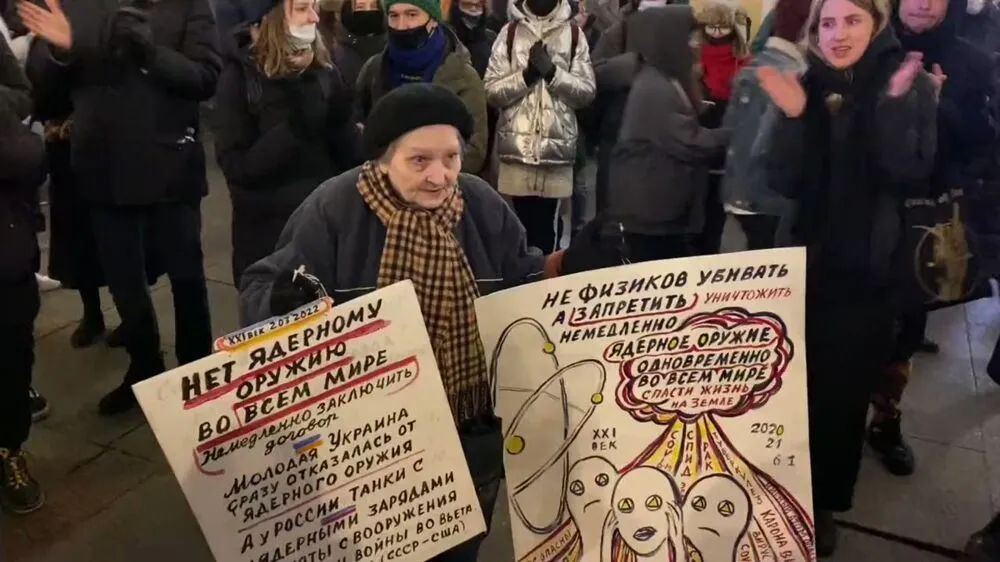 XXI ВЕК 2.03.2022
НЕТ ЯДЕРНОМУ
ОРУЖИЮ
ВО ВСЕМ МИРЕ
НЕМЕДЛЕННО ЗАКЛЮЧИТЬ
ДОГОВОР
МОЛОДАЯ УКРАИНА
СРАЗУ ОТКАЗАЛАСЬ ОТ
ЯДЕРНОГО ОРУЖИЯ
А У РОССИИ ТАНКИ С
ЯДЕРНЫМИ ЗАРЯДАМИ
С ВООРУЖЕНИЯ
ВОЙНЫ ВО ВЬЕТА
(СССР-США)
НЕ ФИЗИКОВ УБИВАТЬ
А ЗАПРЕТИТЬ УНИЧТОЖИТЬ
НЕМЕДЛЕННО
ЯДЕРНОЕ ОРУЖИЕ
ОДНОВРЕМЕННО
ВО ВСЕМ МИРЕ
СПАСТИ ЖИЗНЬ
НА ЗЕМЛЕ
XXI
ВЕК
2020
21
СПИД
КАРОНА ВИ
ВИРУС